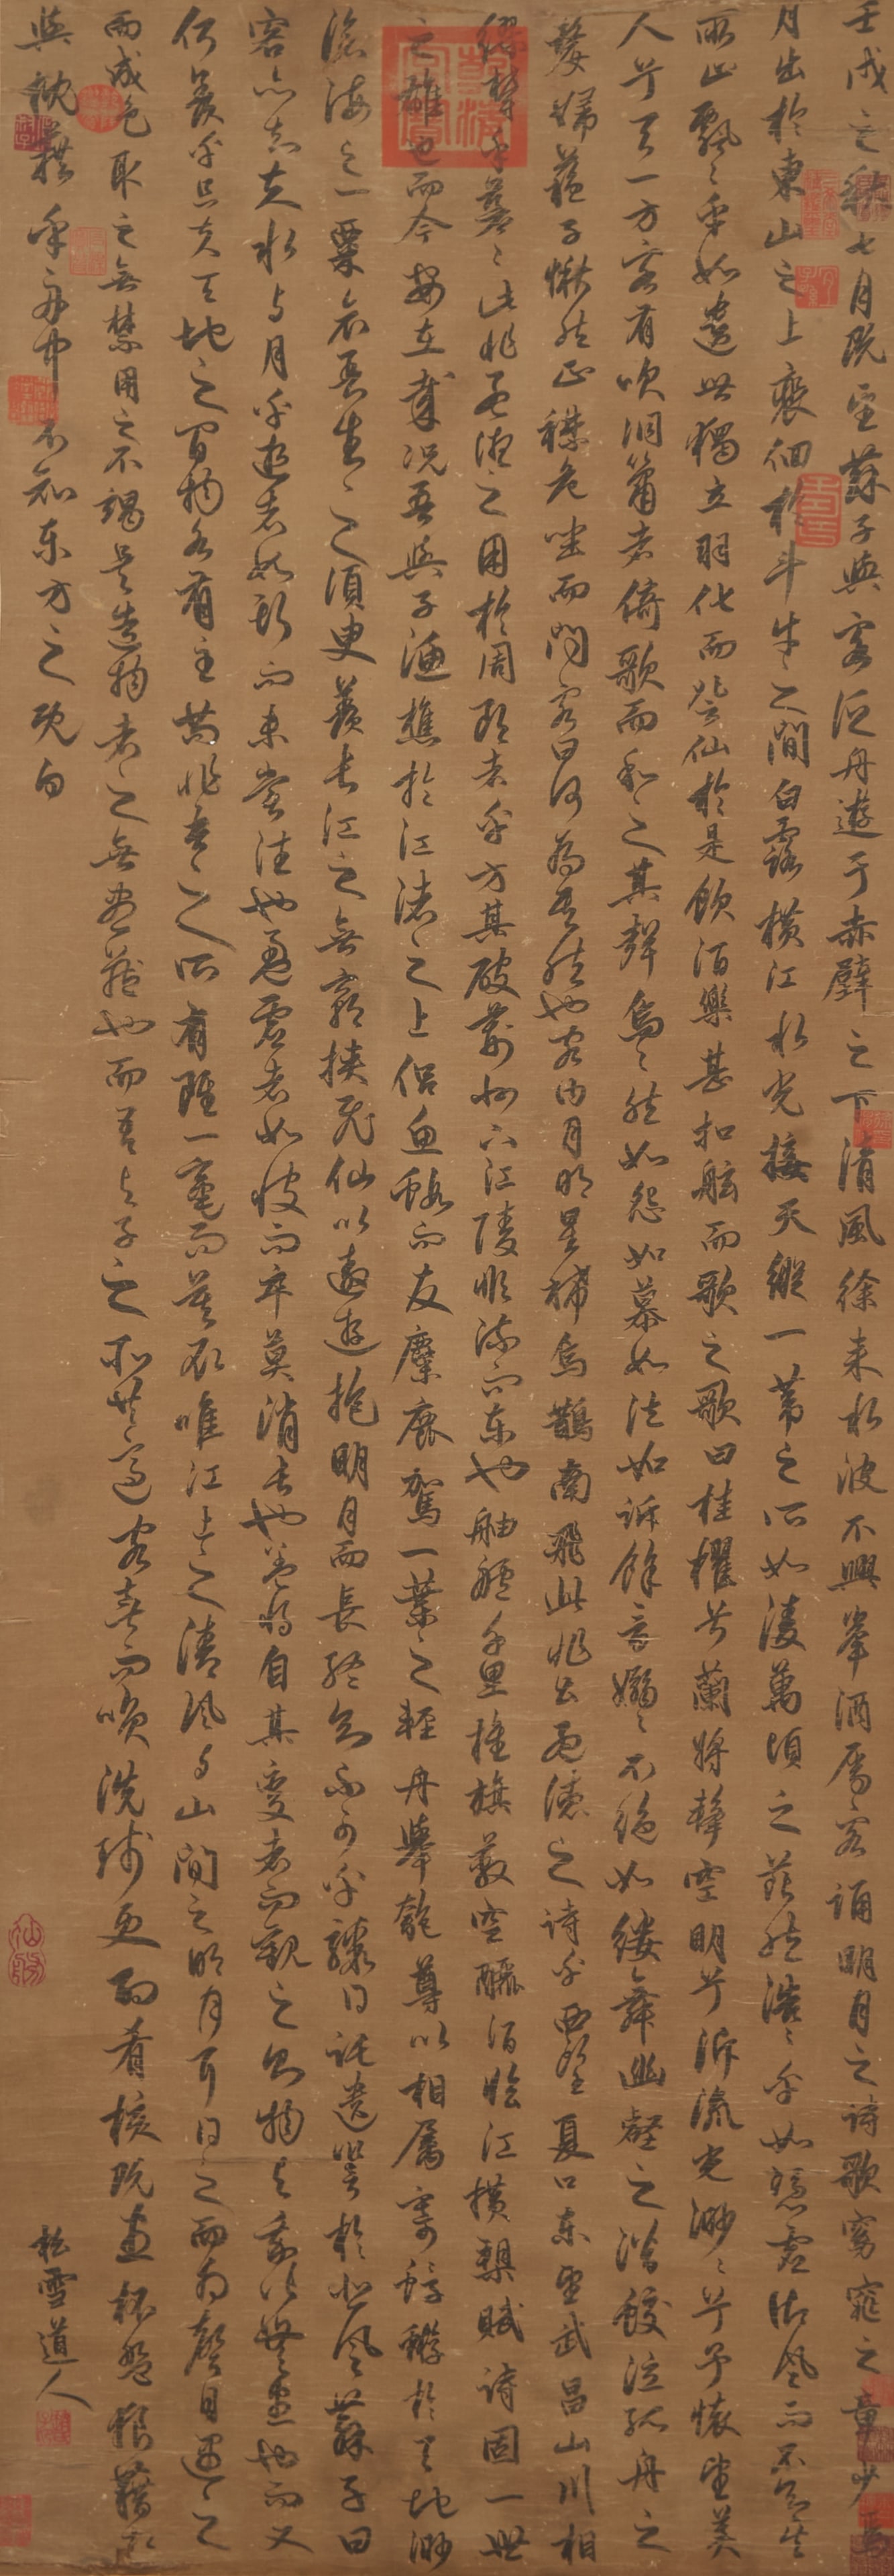 壬戌之秋七月既望蘇子與客泛舟遊于赤壁之下清風徐來水波不興舉酒屬客誦明月之詩歌窈窕之章少焉
月出於東山之上裵佪於斗牛之間白露橫江水光接天縱一葦之所如淩萬頃之茫然浩〻乎如馮虛御風而不知其
所止飄〻乎如遺世獨立羽化而登仙於是飲酒樂甚扣舷而歌之歌曰桂櫂兮蘭槳擊空明兮泝流光渺〻兮予懷望美
人兮天一方客有吹洞簫者倚歌而和之其聲烏〻然如怨如慕如泣如訴餘音嫋〻不絕如縷舞幽壑之潛蛟泣孤舟之
嫠婦蘇子愀然正襟危坐而問客曰何為其然也客曰月明星稀烏鵲南飛此非曹孟德之詩乎西望夏口東望武昌山川相
繆鬱乎蒼〻此非孟德之困於周郎者乎方其破荊州下江陵順流而東也舳艫千里旌旗蔽空釃酒臨江橫槊賦詩固一世
之雄也而今安在哉況吾與子漁樵於江渚之上侶魚蝦而友麋鹿駕一葉之輕舟舉匏尊以相屬寄蜉蝣於天地渺
滄海之一粟哀吾生之須臾羨長江之無窮挾飛仙以遨遊抱明月而長終知不可乎驟得託遺響於悲風蘇子曰
客亦知夫水與月乎逝者如斯而未嘗往也盈虛者如彼而卒莫消長也蓋將自其變者而觀之則物與我皆無盡也而又
何羨乎且夫天地之間物各有主苟非吾之所有雖一毫而莫取唯江上之清風與山間之明月耳得之而為聲目遇之
而成色取之無禁用之不竭是造物者之無盡藏也而吾與子之所共適客喜而笑洗盞更酌肴核既盡杯盤狼藉相
與枕藉乎舟中不知東方之既白
松雪道人